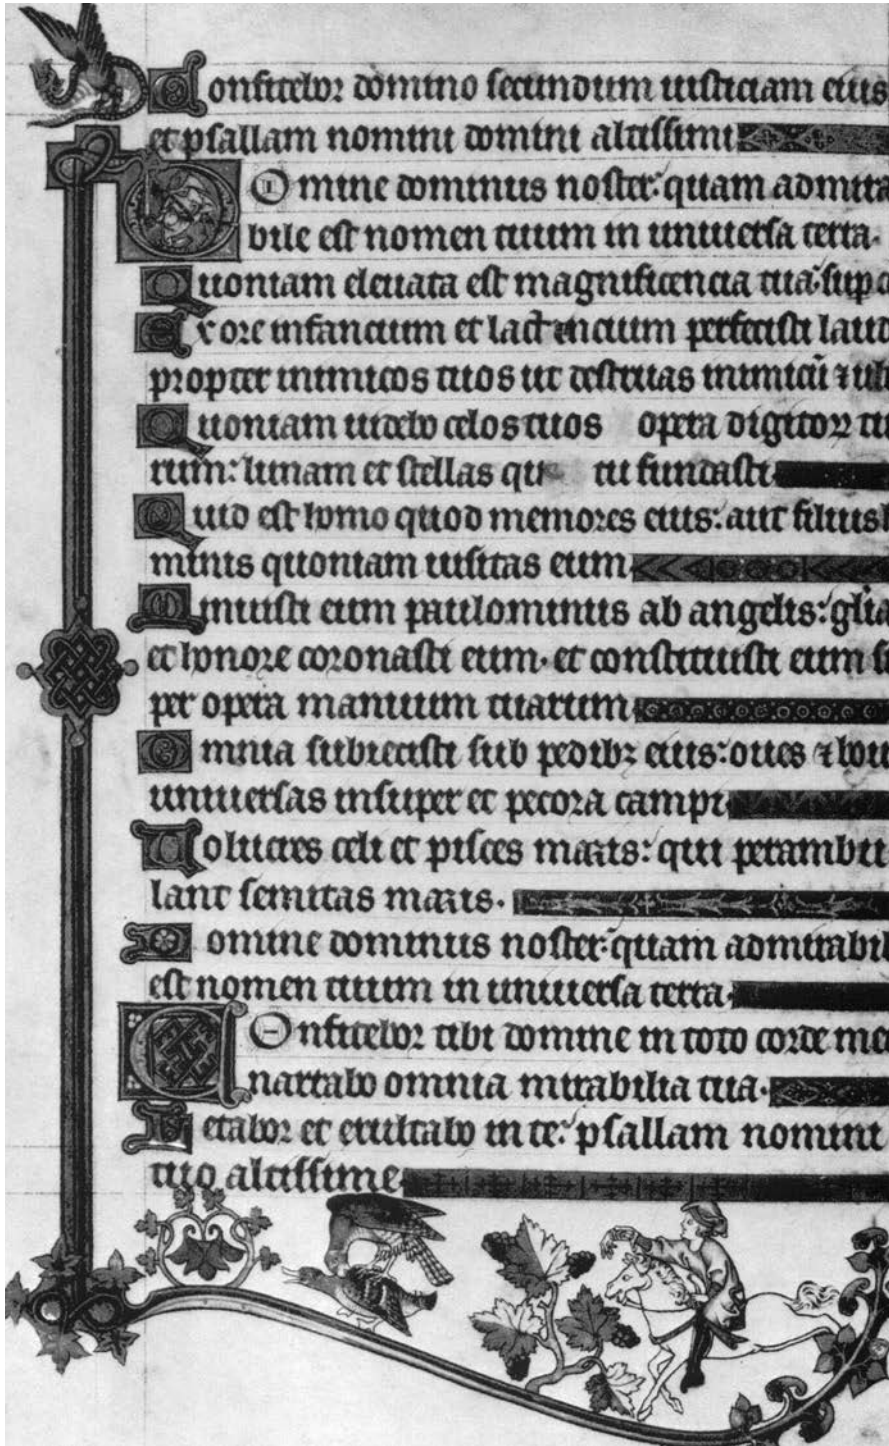 Confitebor domino secundum iusticiam eius
et psallam nomini domini altissimi
Domine dominus noster: quam admira
bile est nomen tuum in universa terra.
Quoniam elevata est magnificencia tua: sup
Ex ore infancium et lactencium perfecisti
propter inimicos tuos ut destruas inimicū ⁊
Quoniam videbo celos tuos opera digitoꝝ tu
rum: lunam et stellas tu fundasti
Quid est homo quod memores eius: aut filius
minis quoniam visitas eum
Minuisti eum paulominus ab angelis: gl̄ia
et honore coronasti eum. et constituisti eum
per opera manuum tuarum
Omnia subiecisti sub pedibꝫ eius: oves ⁊
universas insuper et pecora campi
Volucres celi et pisces maris: qui perambu
lant semitas maris.
Domine dominus noster: quam admirabil
est nomen tuum in universa terra
Confitebor tibi domine in toto corde me
narrabo omnia mirabilia tua.
Letabor et exultabo in te: psallam nomini
tuo altissime